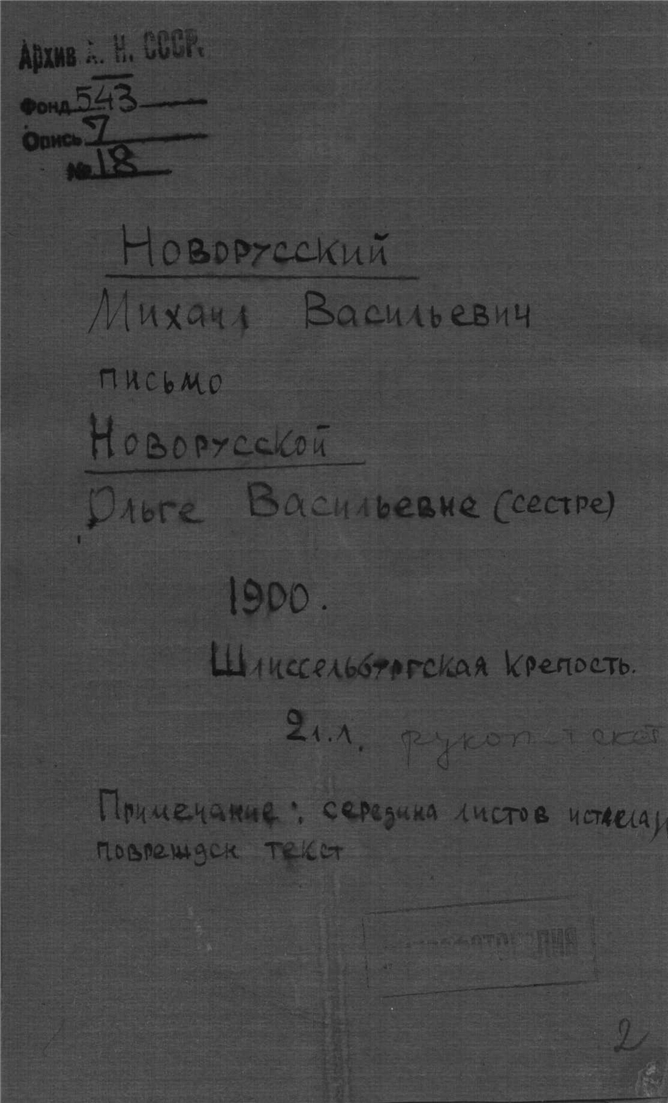 Архив А. Н. СССР.
Фонд 543
Опись 7
№ 18
Новорусский
Михаил Васильевич
письмо
Новорусской
Ольге Васильевне (сестре)
1900.
Шлиссельбургская крепость.
2 л.л.
Примечание: середина листов истлела,
поврежден текст
2